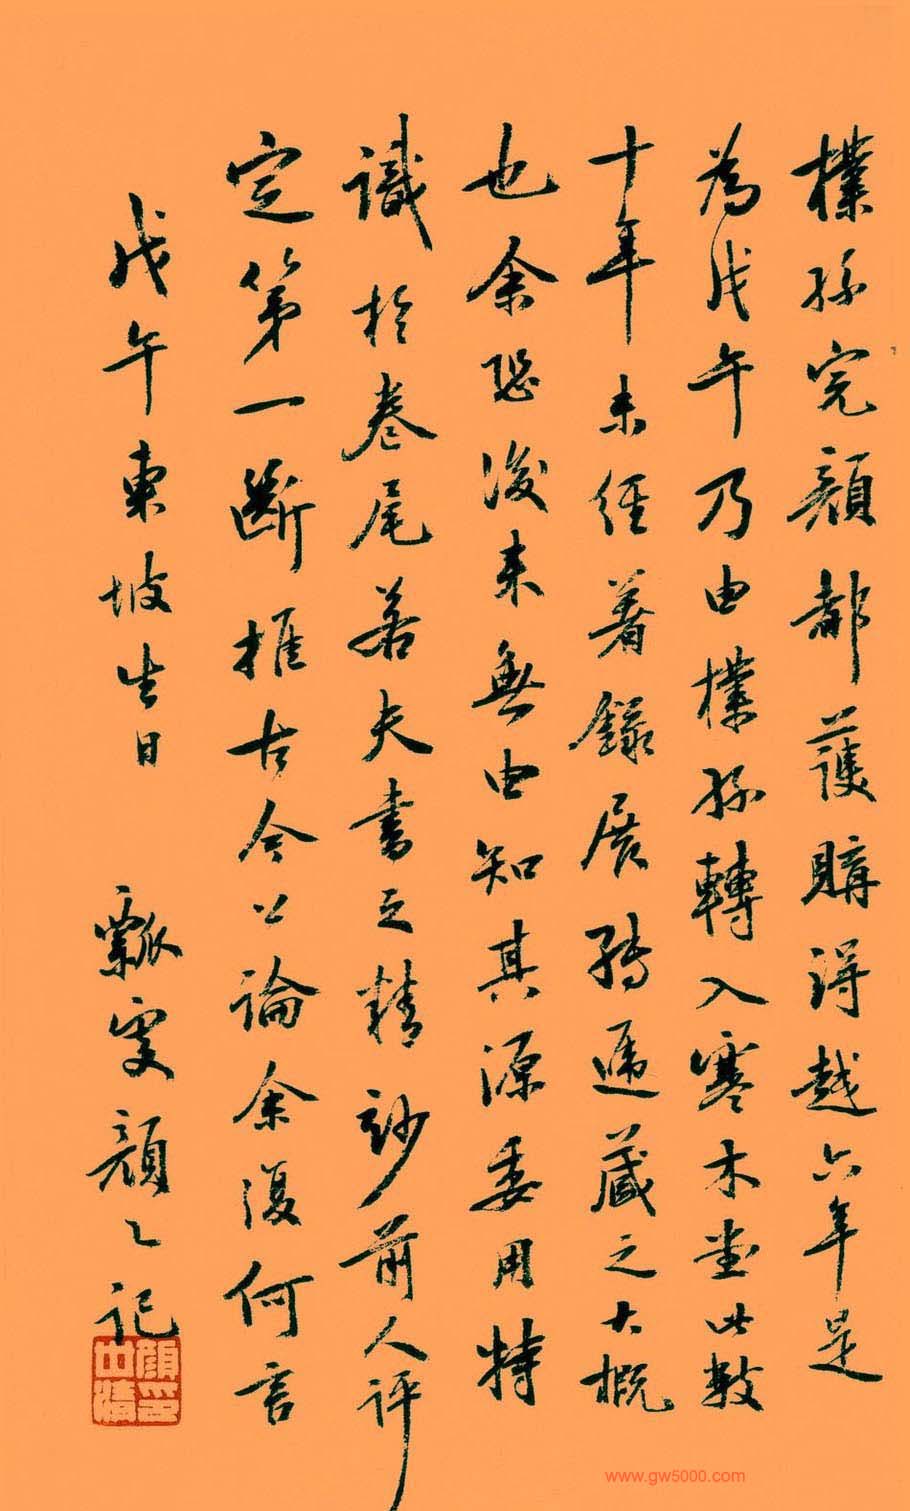 樸孫完顏都護購得越六年是
為戊午乃由樸孫轉入寒木堂此數
十年未經著錄展轉遞藏之大概
也余恐後來無由知其源委用特
識於卷尾若夫書之精玅前人評
定第一斷推古今公論余復何言
戊午東坡生日 瓢叟顏記
顏印世清
www.gw5000.com